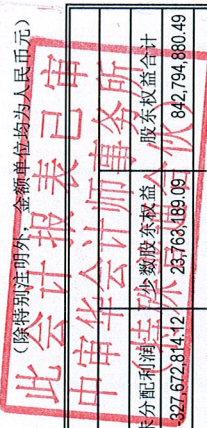 （除特别注明外，金额单位均为人民币元）
未分配利润 少数股东权益 股东权益合计
-327,672,814.12 23,763,189.09 842,794,880.49
此会计报表已审
中审华会计师事务所
（特殊普通合伙）